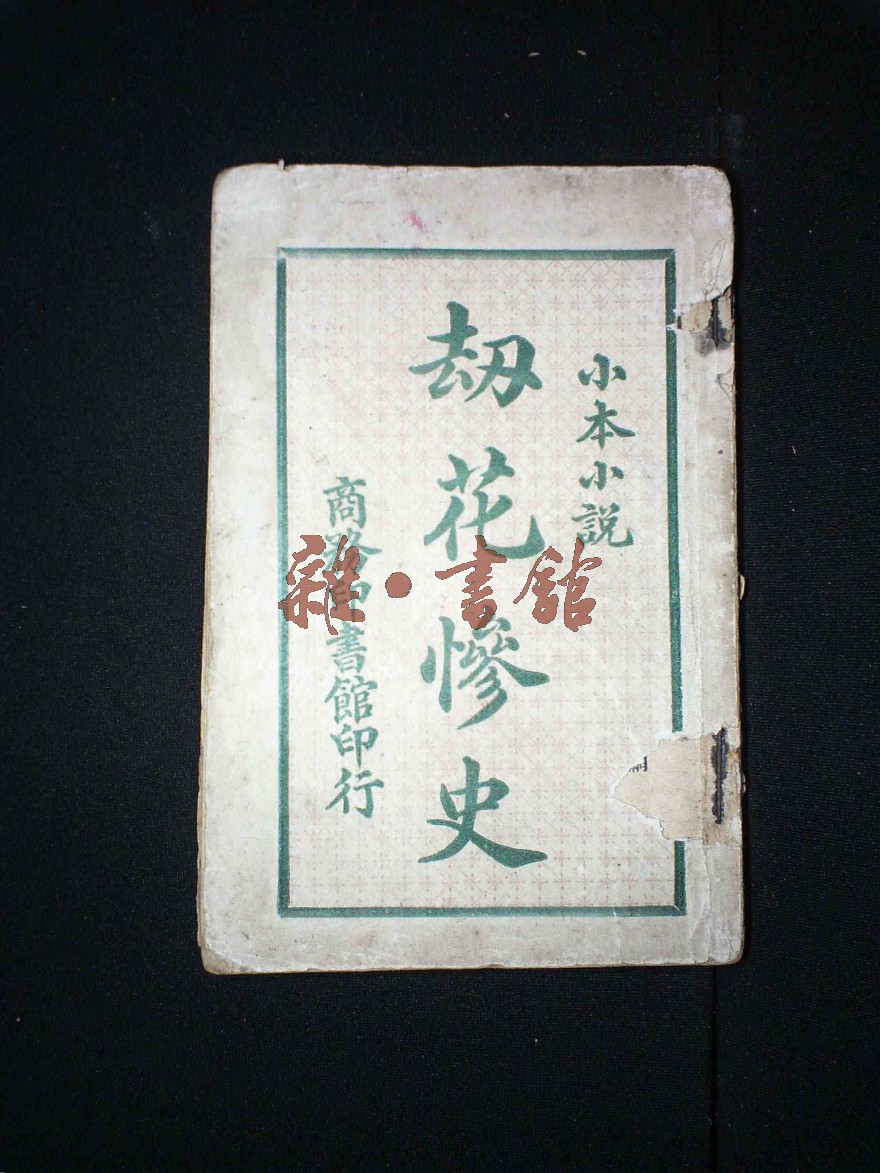 小本小說
刧花慘史
商務印書館印行
雜·書館